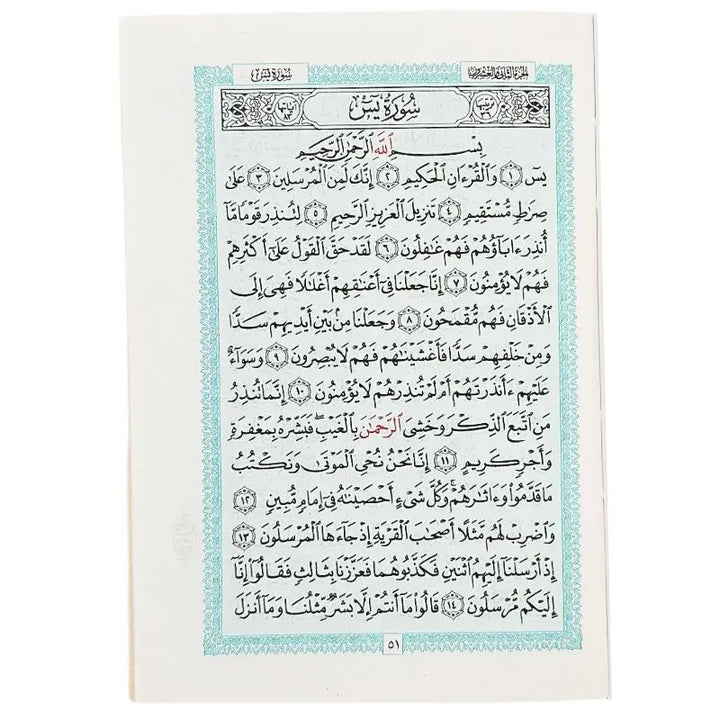 الجزء الثاني والعشرون
سورة يس
ترتيبها ٣٦
سُورَةُ يسٓ
آياتها ٨٣
بِسْمِ ٱللَّهِ ٱلرَّحْمَٰنِ ٱلرَّحِيمِ
يسٓ ١ وَٱلْقُرْءَانِ ٱلْحَكِيمِ ٢ إِنَّكَ لَمِنَ ٱلْمُرْسَلِينَ ٣ عَلَىٰ
صِرَٰطٍ مُّسْتَقِيمٍ ٤ تَنزِيلَ ٱلْعَزِيزِ ٱلرَّحِيمِ ٥ لِتُنذِرَ قَوْمًا مَّآ
أُنذِرَ ءَابَآؤُهُمْ فَهُمْ غَٰفِلُونَ ٦ لَقَدْ حَقَّ ٱلْقَوْلُ عَلَىٰٓ أَكْثَرِهِمْ
فَهُمْ لَا يُؤْمِنُونَ ٧ إِنَّا جَعَلْنَا فِىٓ أَعْنَٰقِهِمْ أَغْلَٰلًا فَهِىَ إِلَى
ٱلْأَذْقَانِ فَهُم مُّقْمَحُونَ ٨ وَجَعَلْنَا مِنۢ بَيْنِ أَيْدِيهِمْ سَدًّا
وَمِنْ خَلْفِهِمْ سَدًّا فَأَغْشَيْنَٰهُمْ فَهُمْ لَا يُبْصِرُونَ ٩ وَسَوَآءٌ
عَلَيْهِمْ ءَأَنذَرْتَهُمْ أَمْ لَمْ تُنذِرْهُمْ لَا يُؤْمِنُونَ ١٠ إِنَّمَا تُنذِرُ
مَنِ ٱتَّبَعَ ٱلذِّكْرَ وَخَشِىَ ٱلرَّحْمَٰنَ بِٱلْغَيْبِ ۖ فَبَشِّرْهُ بِمَغْفِرَةٍ
وَأَجْرٍ كَرِيمٍ ١١ إِنَّا نَحْنُ نُحْىِ ٱلْمَوْتَىٰ وَنَكْتُبُ
مَا قَدَّمُوا۟ وَءَاثَٰرَهُمْ ۚ وَكُلَّ شَىْءٍ أَحْصَيْنَٰهُ فِىٓ إِمَامٍ مُّبِينٍ ١٢
وَٱضْرِبْ لَهُم مَّثَلًا أَصْحَٰبَ ٱلْقَرْيَةِ إِذْ جَآءَهَا ٱلْمُرْسَلُونَ ١٣
إِذْ أَرْسَلْنَآ إِلَيْهِمُ ٱثْنَيْنِ فَكَذَّبُوهُمَا فَعَزَّزْنَا بِثَالِثٍ فَقَالُوٓا۟ إِنَّآ
إِلَيْكُم مُّرْسَلُونَ ١٤ قَالُوا۟ مَآ أَنتُمْ إِلَّا بَشَرٌ مِّثْلُنَا وَمَآ أَنزَلَ
٥١